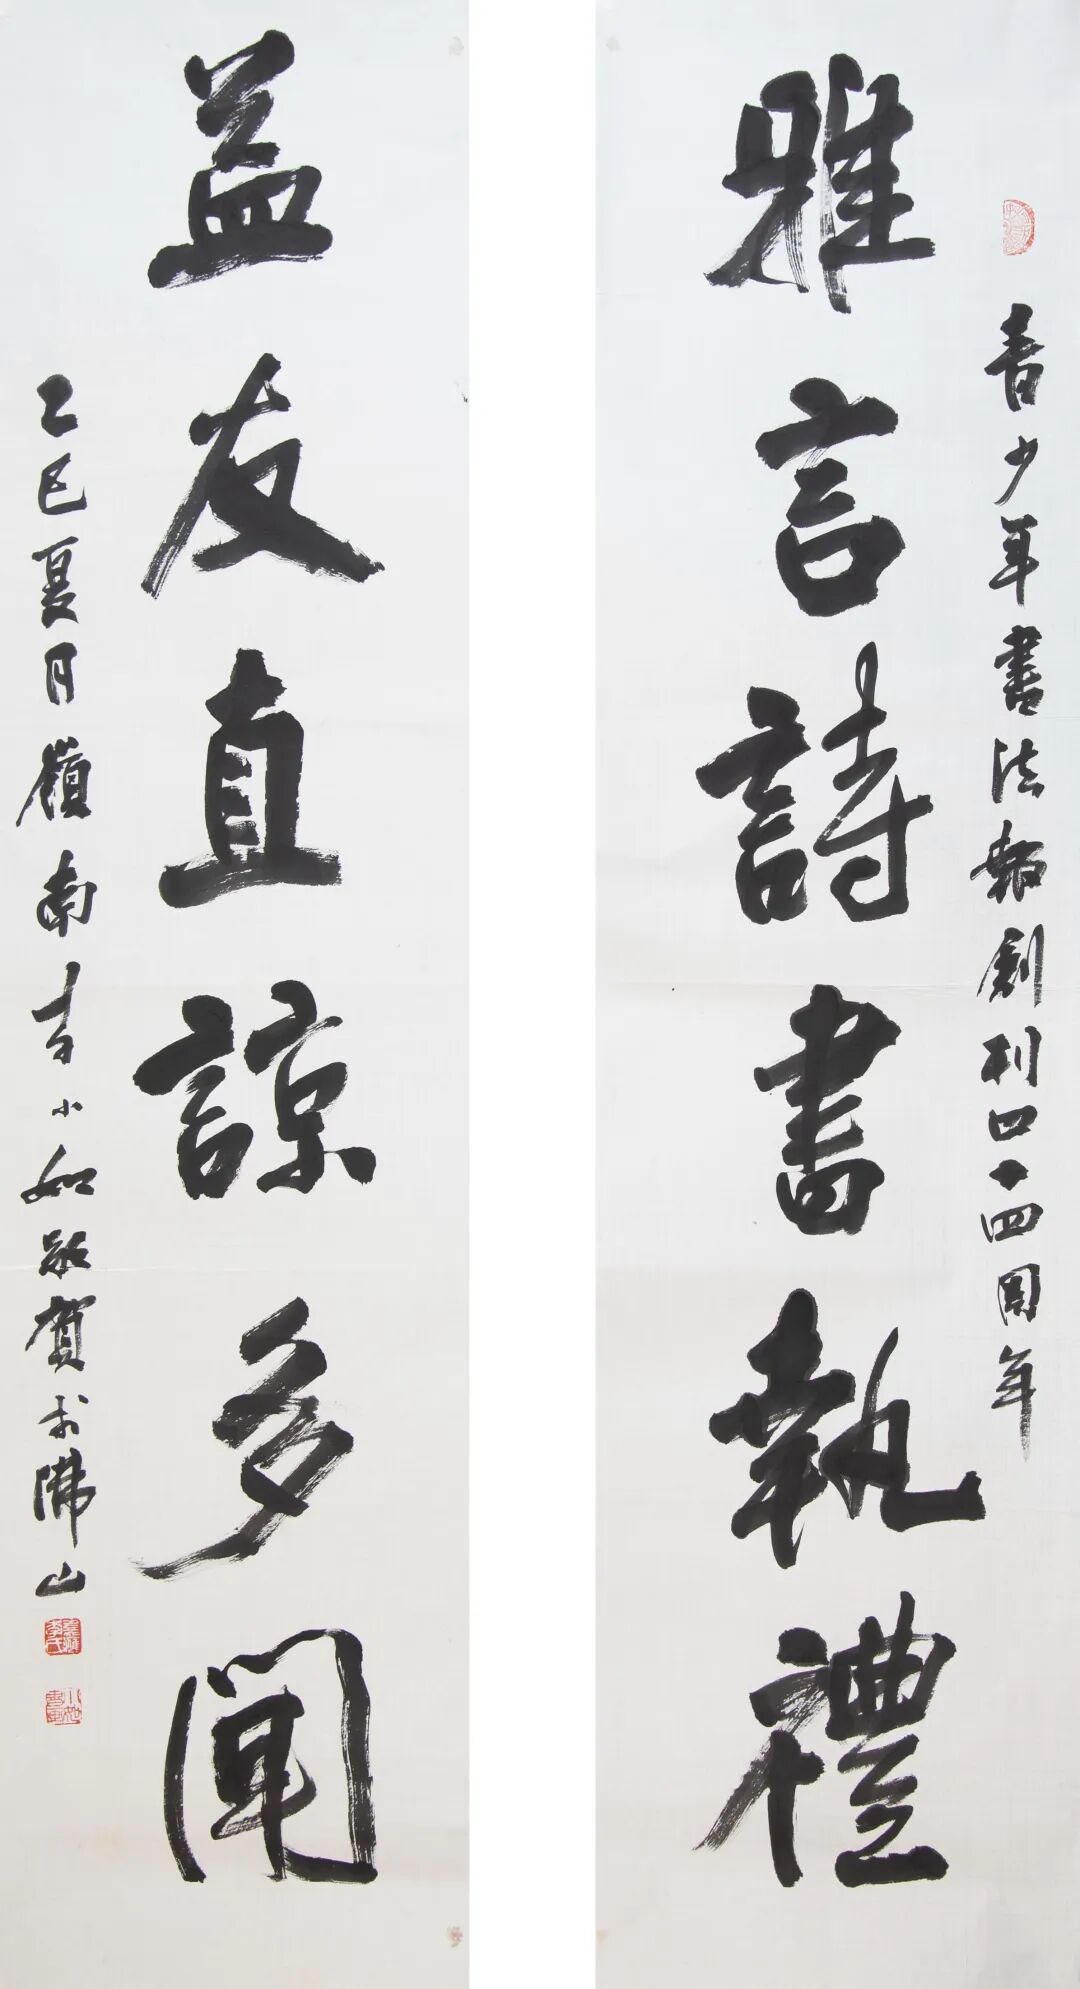 青少年書法報創刊四十四周年
雅言詩書執禮
益友直諒多聞
乙巳夏月嶺南李小如敬賀於佛山